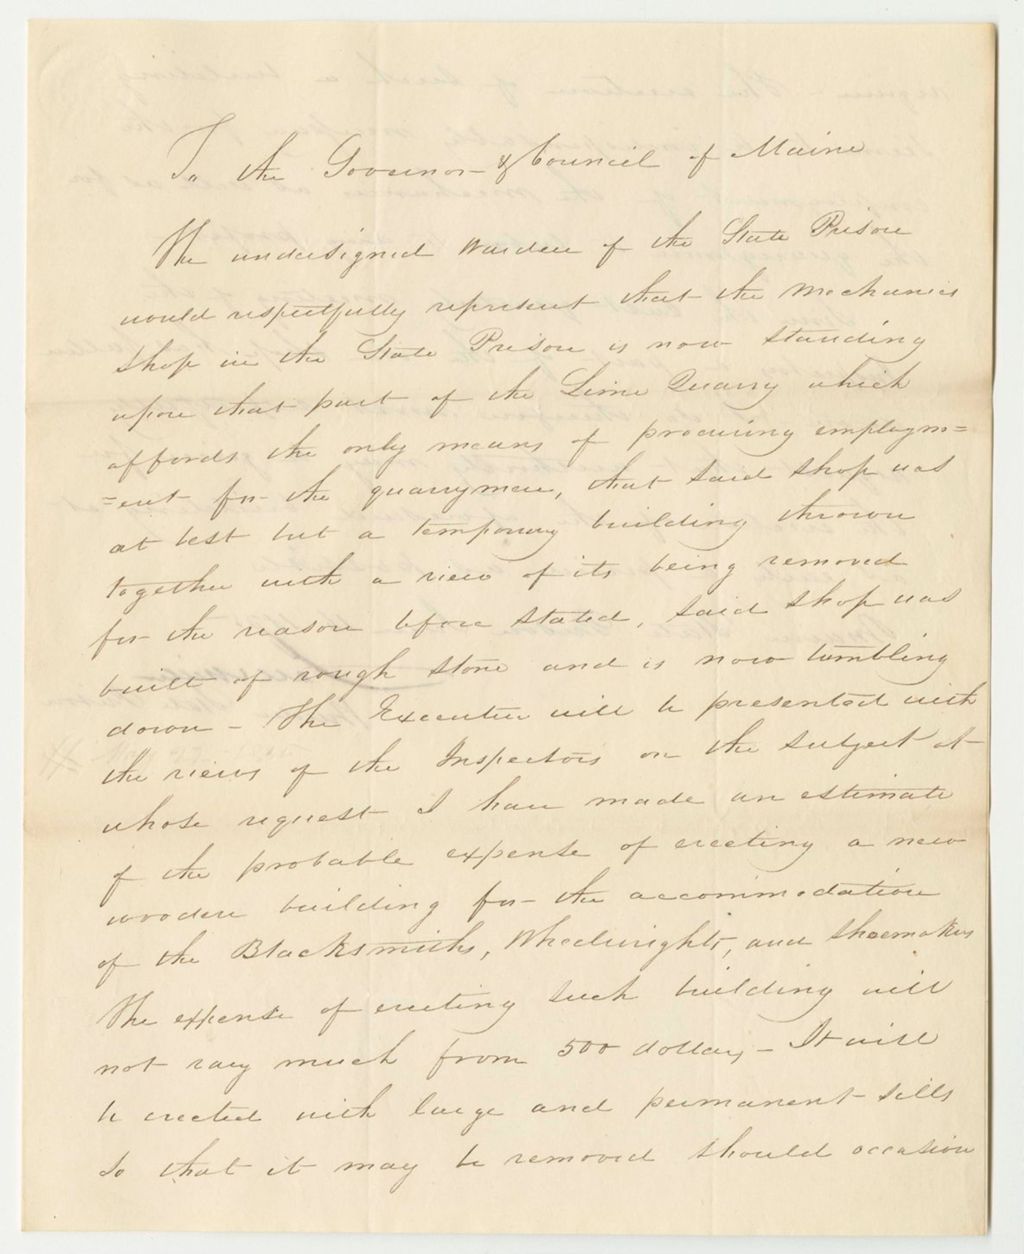 To the Governor & Council of Maine
The undersigned Warden of the State Prison
would respectfully represent that the Mechanics
Shop in the State Prison is now standing
upon that part of the Lime Quarry which
affords the only means of procuring employm=
=ent for the quarrymen, that said shop was
at best but a temporary building thrown
together with a view of its being removed
for the reason before stated, said shop was
built of rough stone and is now tumbling
down - The Executive will be presented with
the views of the Inspectors on the subject at
whose request I have made an estimate
of the probable expense of erecting a new
wooden building for the accommodation
of the Blacksmiths, Wheelwrights, and Shoemakers
The expense of erecting such building will
not vary much from 500 dollars - It will
be erected with large and permanent sills
so that it may be removed should occasion